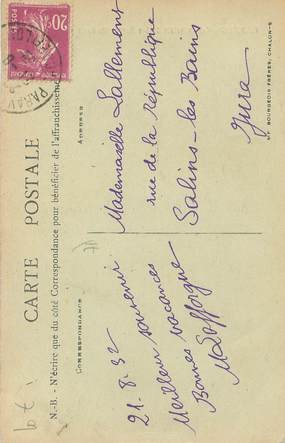 CARTE POSTALE
N.-B. - N'écrire que du côté Correspondance pour bénéficier de l'affranchissement
CORRESPONDANCE
21.8.32
Meilleur souvenir
Bonnes vacances
ADRESSE
Mademoiselle Lallement
rue de la république
Salins-les Bains
Jura
BOURGEOIS FRÈRES, CHALON-S
20c
PARAY